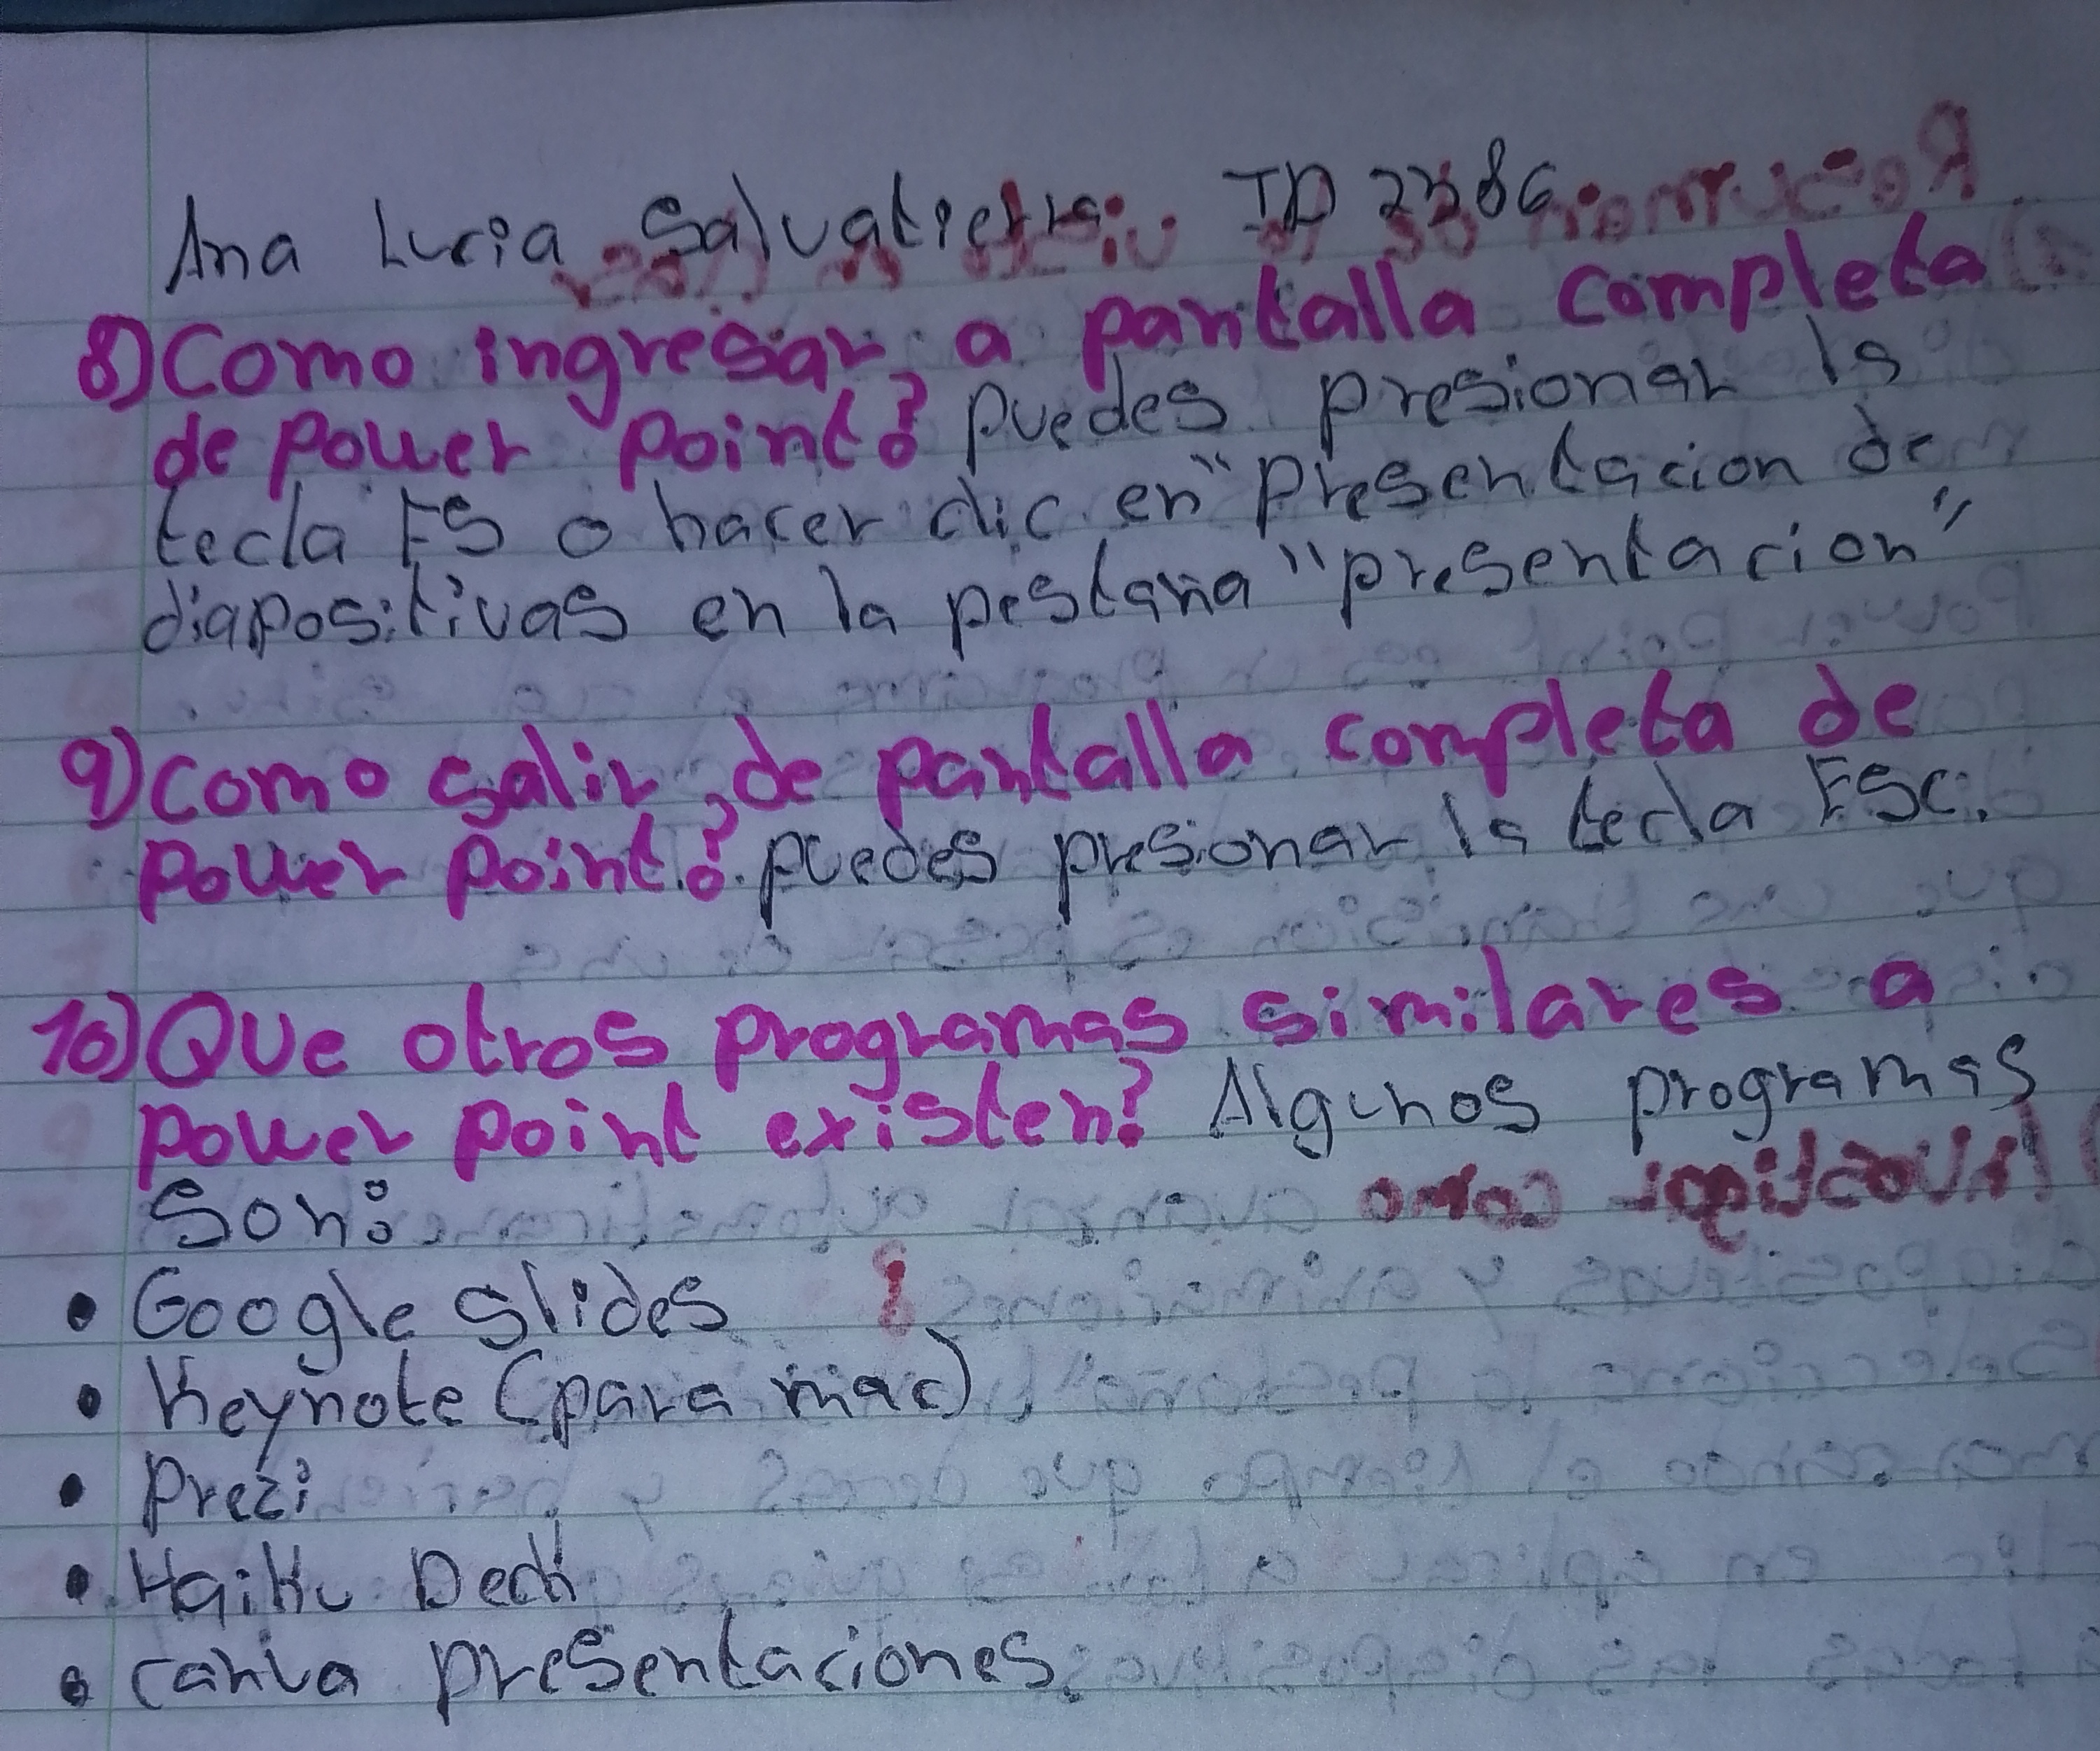 Ana Lucia Salvatierra ID 2386
8) Como ingresar a pantalla completa
de power point? puedes presionar la
tecla F5 o hacer clic en "Presentacion de
diapositivas en la pestaña "presentacion"
9) como salir de pantalla completa de
power point? puedes presionar la tecla Esc.
10) Que otros programas similares a
power point existen? Algunos programas
Son:
• Google Slides
• Keynote (para mac)
• Prezi
• Haiku Deck
• canva presentaciones.